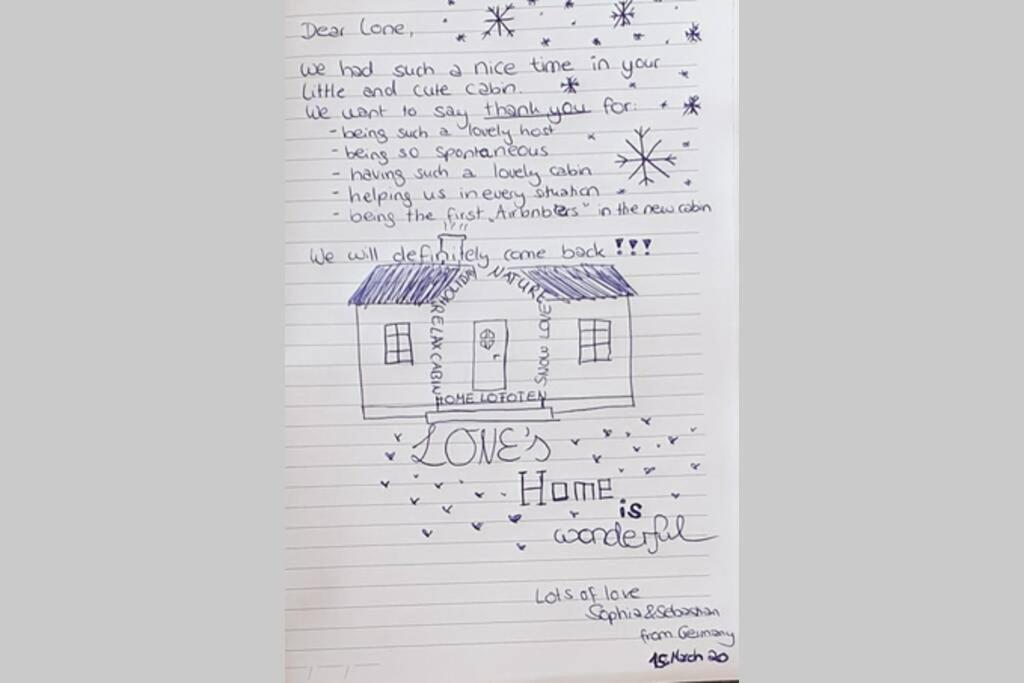 Dear Lone,
We had such a nice time in your
little and cute cabin.
We want to say thank you for:
- being such a lovely host
- being so spontaneous
- having such a lovely cabin
- helping us in every situation
- being the first „Airbnbers" in the new cabin
We will definitely come back !!!
RELAX CABIN HOLIDAY NATURE LOVE SNOW
HOME LOFOTEN
LONE's
Home
is
wonderful
Lots of love
Sophia & Sebastian
from Germany
15. March 20